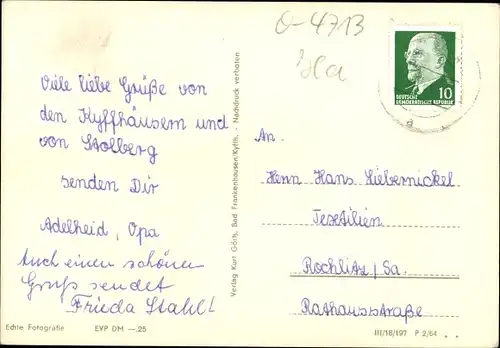 O-4713
Viele liebe Grüße von
den Kyffhäusern und
von Stolberg
senden Dir
Adelheid, Opa
Auch einen schönen
Gruß sendet
Frieda Stahl!
Echte Fotografie EVP DM —.25
Verlag Kurt Görth, Bad Frankenhausen/Kyffh. - Nachdruck verboten
10
DEUTSCHE
DEMOKRATISCHE REPUBLIK
An.
Herrn Hans Liebernickel
Textilien
Rochlitz/Sa.
Rathausstraße
III/18/197 P 2/64